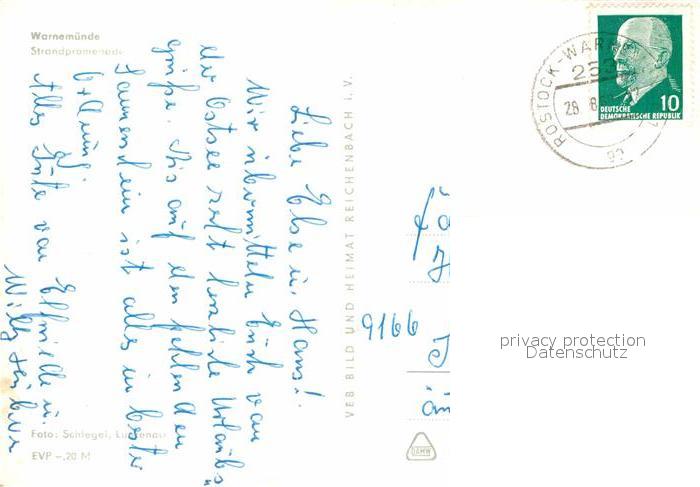 Warnemünde
Strandpromenade
Liebe Else u. Hans!
Wir übermitteln Euch von
der Ostsee recht herzliche Urlaubs-
grüße. Bis auf den fehlenden
Sonnenschein ist alles in bester
Ordnung.
Alles Gute von Elfriede u.
Willy
Foto: Schlegel, Luckenau
EVP -,20 M
VEB BILD UND HEIMAT REICHENBACH i. V.
DAMW
ROSTOCK-WARNE
28. 8
DEUTSCHE
DEMOKRATISCHE REPUBLIK
10
9166
privacy protection
Datenschutz